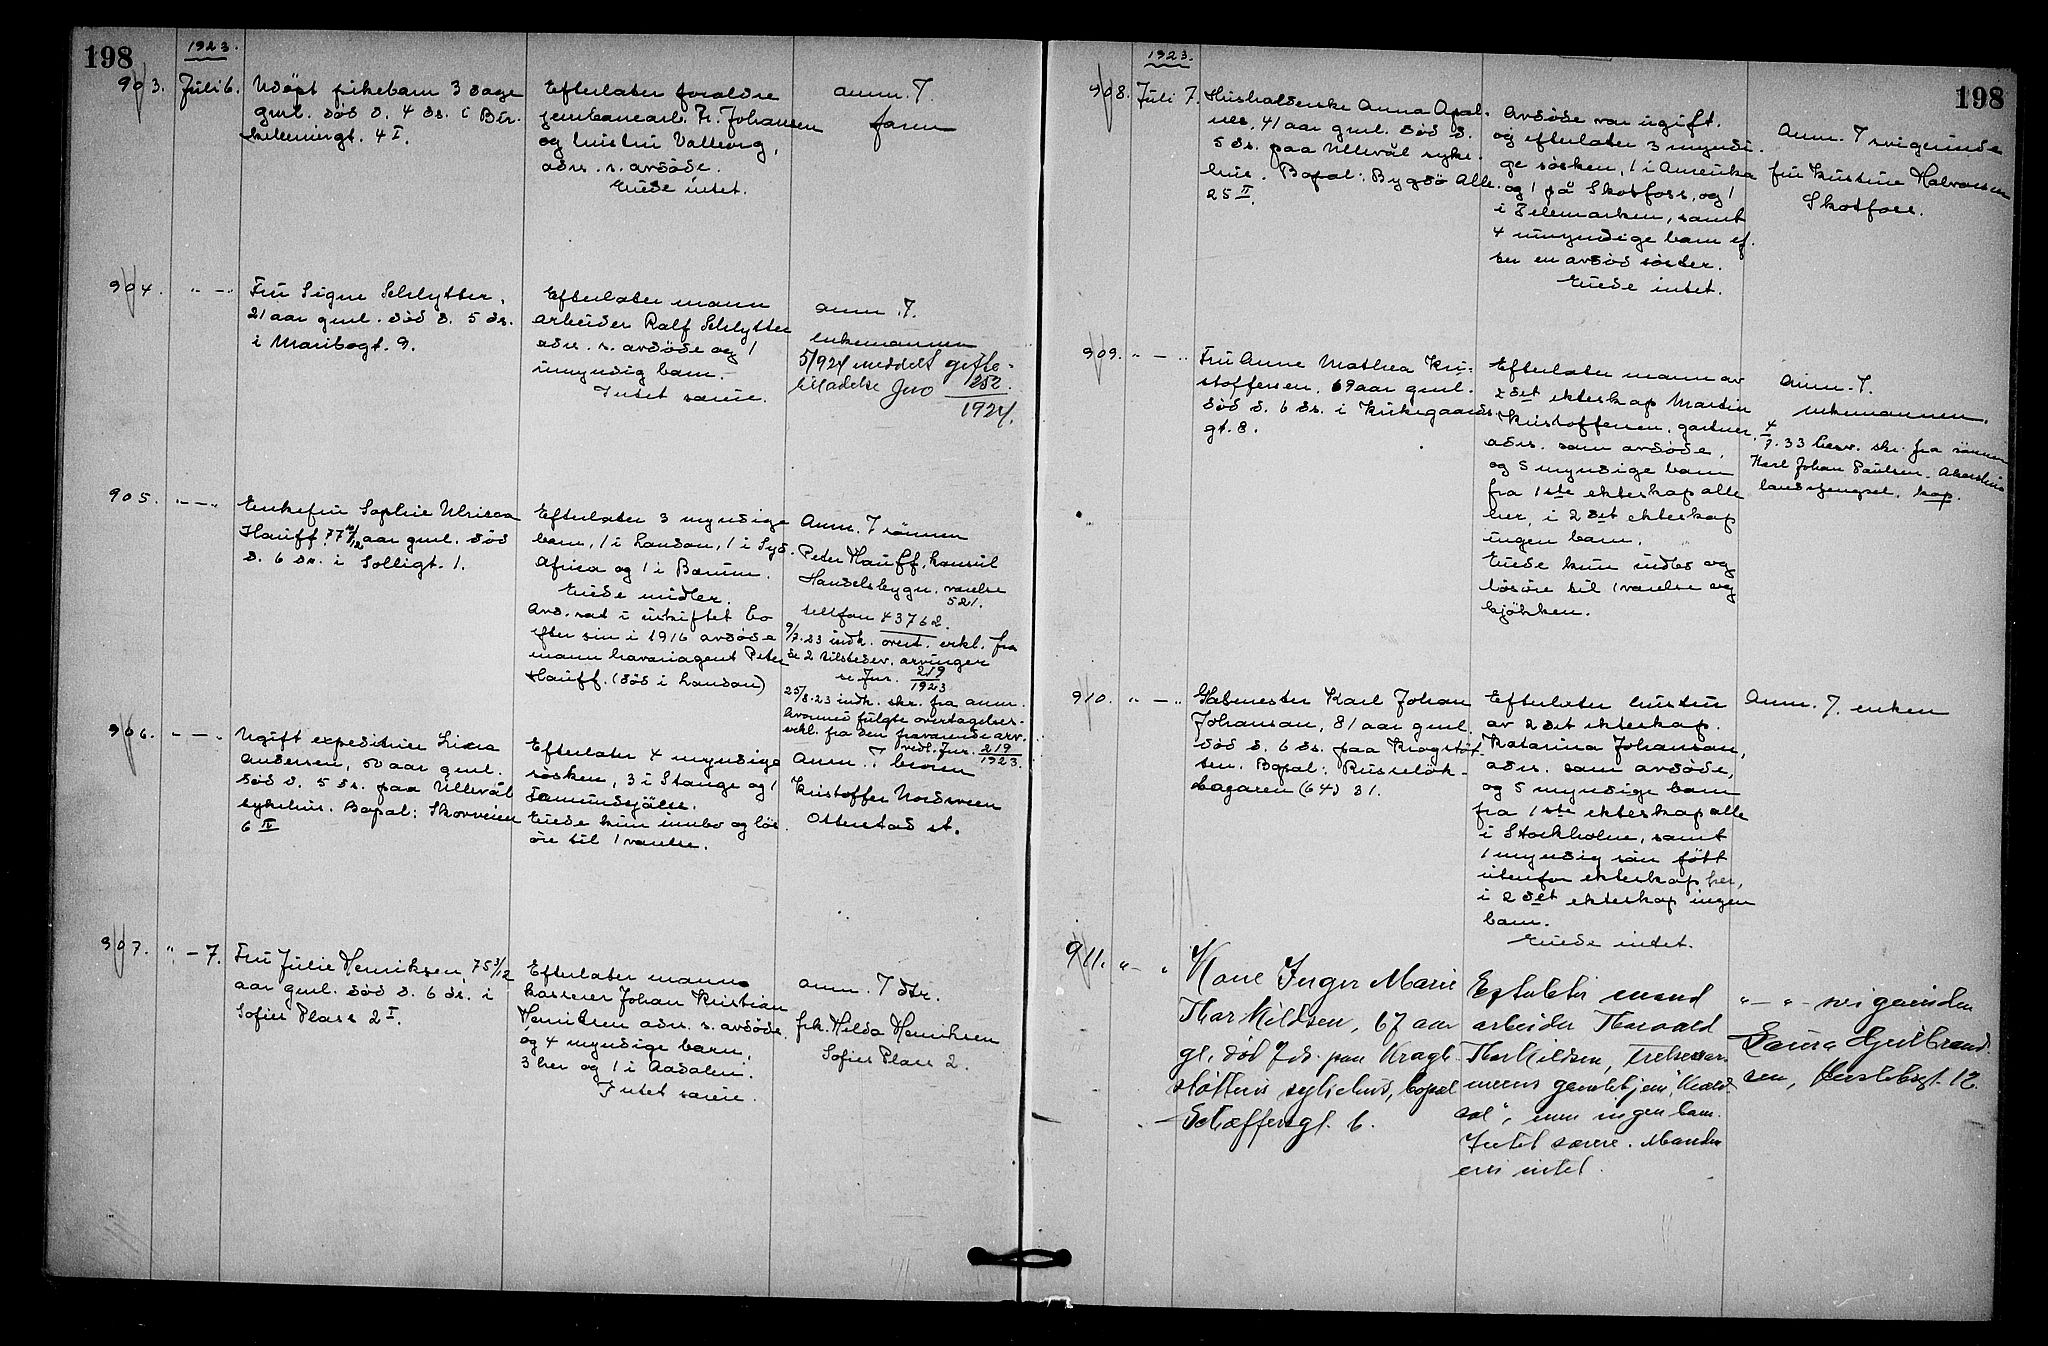 198
1923.
903. Juli 6. Udöpt pikebarn 3 dage
gml. död d. 4 ds. i Bir-
kelundgt. 4 I.
Efterlater foraldre
jernbanearb. Fr. Johansen
og hustru Valborg,
adrs. s. avdöde.
Eiede intet.
Anm. J.
faren
904. " - " Fru Signe Schlytter,
21 aar gml. död d. 5 ds.
i Maribogt. 9.
Efterlater mann
arbeider Ralf Schlytter
adr. s. avdöde og 1
umyndig barn.
Intet særeie.
anm. J.
enkemannen
5/924 meddelt gifte-
tilladelse Jno 252
1924.
905. " - " Enkefru Sophie Ulricca
Hauff, 77 aar gml. död
d. 6 ds. i Solligt. 1.
Efterlater 3 myndige
barn, 1 i London, 1 i Syd.
Africa og 1 i Bærum.
Eiede midler.
Avd. sad i uskiftet bo
efter sin i 1916 avdöde
mann havariagent Peter
Hauff. (död i London)
Anm. J sönnen
Peter Hauff, konsul
Handelsbygn. værelse
521.
telefon 43762.
9/7.23 indk. overt. erkl. fra
de 2 tilstedev. arvinger
se Jnr. 219
1923
25/8.23 indk. skr. fra anm.
hvormed fulgte overtagelses-
erkl. fra den fraværende arv.
vedl. Jnr. 219
1923.
906. " - " Ugift expeditrice Lina
Andersen, 50 aar gml.
död d. 5 ds. paa Ullevål
sykehus. Bopal: Skovveien
6 II
Efterlater 4 myndige
söskn, 3 i Stange og 1
Eiede kun innbo og lös
öre til 1 værelse.
Anm. J broren
Kristoffer Nordsveen
Ottestad st.
907. " - 7. Fru Julie Henriksen, 75 3/12
aar gml. död d. 6 ds. i
Sofies Plass 2 I.
Efterlater mann
kasserer Johan Kristian
Henriksen adr. s. avdöde
og 4 myndige barn,
3 her og 1 i Aadalen.
Intet særeie.
anm. J dtr.
frk. Hilda Henriksen
Sofies Plass 2.
198
1923.
908. Juli 7. Husholderske Anna Apal-
nes, 41 aar gml. död d.
5 ds. paa Ullevål syke-
hus. Bopal: Bygdö Alle.
25 II.
Avdöde var ugift.
og efterlater 3 myndi-
ge søsken, 1 i Amerika
og 1 på Skotfoss, og 1
i Telemarken, samt
4 umyndige barn ef-
ter en avdöd söster.
Eiede intet.
Anm. J svigerinde
fru Kristine Halvorsen
Skotfoss.
909. " - " Fru Anne Mathea Kri-
stoffersen, 69 aar gml.
död d. 6 ds. i Kirkegaards
gt. 8.
Efterlater mann av
2det ekteskap Martin
Kristoffersen, gartner,
adrs. som avdöde,
og 5 myndige barn
fra 1ste ekteskap alle
her, i 2det ekteskap
ingen barn.
Eiede kun indbo og
lösöre til 1 værelse og
kjökken.
Anm. J.
enkemannen.
4/7.33 besv. skr. fra sönnen
Karl Johan Paulsen, Akershus
landsfengsel. kop.
910. " - " Gabmester Karl Johan
Johanson, 81 aar gml.
död d. 6 ds. paa Krogstöt-
ten. Bopal: Russelök-
bagaren (64) 31.
Efterlater hustru
av 2det ekteskap.
Katarina Johanson,
adrs. som avdöde,
og 5 myndige barn
fra 1ste ekteskap alle
i Stockholm, samt
1 myndig sön född
utenfor ekteskap her,
i 2det ekteskap ingen
barn.
Eiede intet.
Anm. J. enken
911. " - " Kone Inger Marie
Thorkildsen, 67 aar
gl. död 7 ds. paa Krag
stöttens sykehus, bopæl
Schæffersgt. 6.
Efterlater mand
arbeider Thorvald
Thorkildsen,
gamlehjem,
men ingen barn.
Intet særeie. Manden
eier intet.
" - " svigerinden
Laura Gulbrand-
sen, 12.